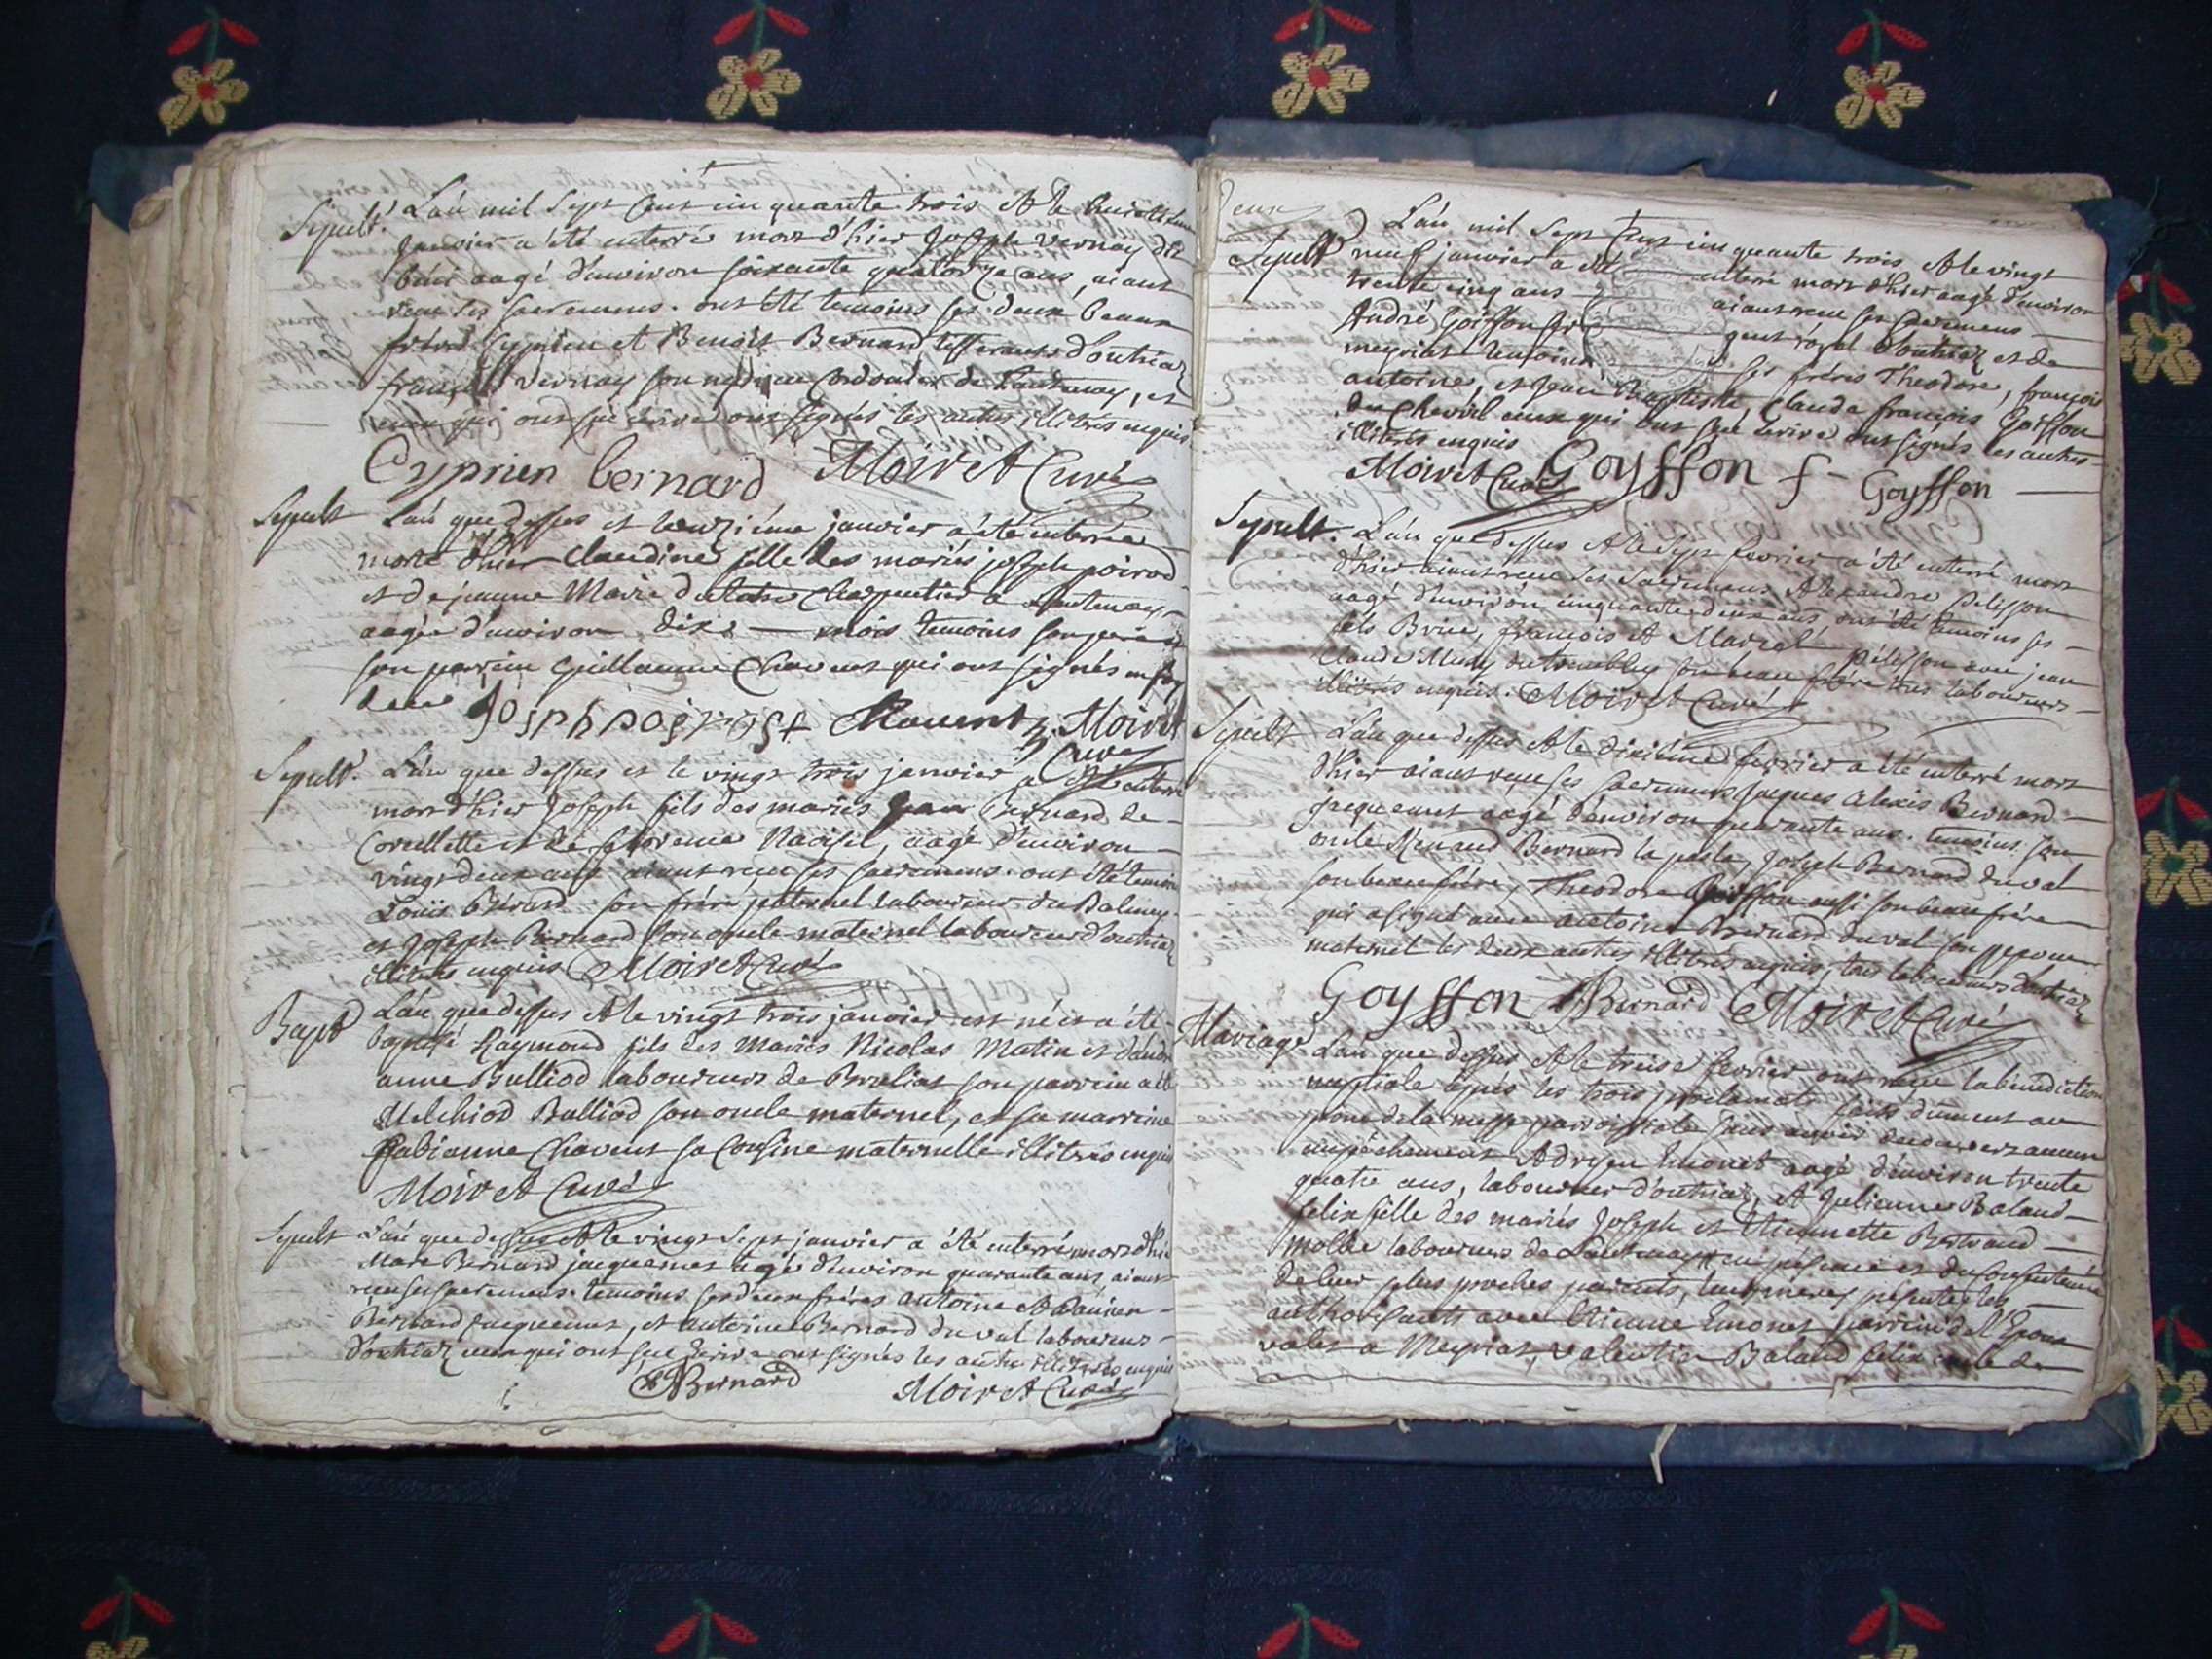 Sepult. L'an mil sept cent cinquante trois et le
janvier a été enterré mort d'hier Joseph Vernay dit
aagé d'environ soixante quatorze ans, aiant
receu ses sacremens. ont été temoins ses deux beaux
fréres Cyprien et Benoit Bernard tisserants d'outriaz
françois Vernay son cordonier de Lantenay, et
ceux qui ont sçu écrire ont signés les autres illitérés enquis
Cyprien bernard Moiret Curé
Sepult L'an que dessus et janvier a été enterrée
morte d'hier Claudine fille des mariés joseph poirod
et de jeanne Marie charpentier a Lantenay
aagée d'environ dix mois temoins son pere et
son parrein Guillaume Chavent qui ont signés
Joseph Chavent Moiret
Curé
Sepult. L'an que dessus et le vingt trois janvier a été enterré
mort d'hier Joseph fils des mariés Bernard de
Corcellette et de aagé d'environ
vingt deux ans aiant receu ses sacremens. ont été temoins
Louis Bérard son frére paternel laboureur du Balmay
et Joseph Bernard son oncle maternel laboureur d'outriaz
illitérés enquis Moiret Curé
Bapt L'an que dessus et le vingt trois janvier est né et a été
baptisé Raymond fils des mariés Nicolas Matin et d'andr
anne Bulliod laboureurs de son parrein a été
Melchiod Bulliod son oncle maternel, et sa marreine
fabianne Chavent sa cousine maternelle illitérés enquis
Moiret Curé
Sepult L'an que dessus et le vingt sept janvier a été enterré mort d'hier
Marc Bernard jacquemet agé d'environ quarante ans aiant
receu ses sacremens. temoins ses deux fréres antoine et Damien
Bernard jacquemet, et antoine Bernard du val laboureurs
d'outriaz ceux qui ont sçu écrire ont signés les autres illitérés enquis
Bernard Moiret Curé
deux
Sepult L'an mil sept cent cinquante trois et le vingt
neuf janvier a été enterré mort d'hier aagé d'environ
trente cinq ans aiant receu ses sacremens
André Goiffon gent royal d'outriaz et de
meyriat temoins ses fréres Theodore, françois
antoine, et Jean Baptiste, Claude françois Goiffon
du Chevril ceux qui ont sçu écrire ont signés les autres
illitérés enquis
Moiret Curé Goyffon f Goyffon
Sepult. L'an que dessus et le sept fevrier a été enterré mort
d'hier aiant receu ses sacremens Alexandre Pelisson
aagé d'environ cinquante deux ans, ont été temoins ses
fils Brice, françois et Marcel Pelisson avec jean
Claude Muny du tremblay son beau frére tous laboureurs
illitérés enquis. Moiret Curé
Sepult L'an que dessus et le dixiéme fevrier a été enterré mort
d'hier aiant receu ses sacremens Jacques Alexis Bernard
jacquemet aagé d'environ quarante ans. temoins son
oncle Renaud Bernard la poste, Joseph Bernard du val
son beau frére, Theodore Goiffon aussi son beau frére
qui a signé avec antoine Bernard du val son
maternel les deux autres illitérés enquis, tous laboureurs d'outriaz
Goyffon Bernard Moiret Curé
Mariage L'an que dessus et le treise fevrier ont receu la bénédiction
nuptiale après les trois proclamats faits dûment au
prone de la messe parroissiale sans avoir découvert aucun
empéchement Adrien Emonet aagé d'environ trente
quatre ans, laboureur d'outriaz, et Julienne Baland
felix fille des mariés Joseph et Etiennette Bertrand
molle laboureurs de Lantenay en présence et du consentement
de leur plus proches parents, leur meres présentes les
authorisants avec Etienne Emonet parrein de l'Epoux
valet a Meyriat, Valentin Baland felix oncle de